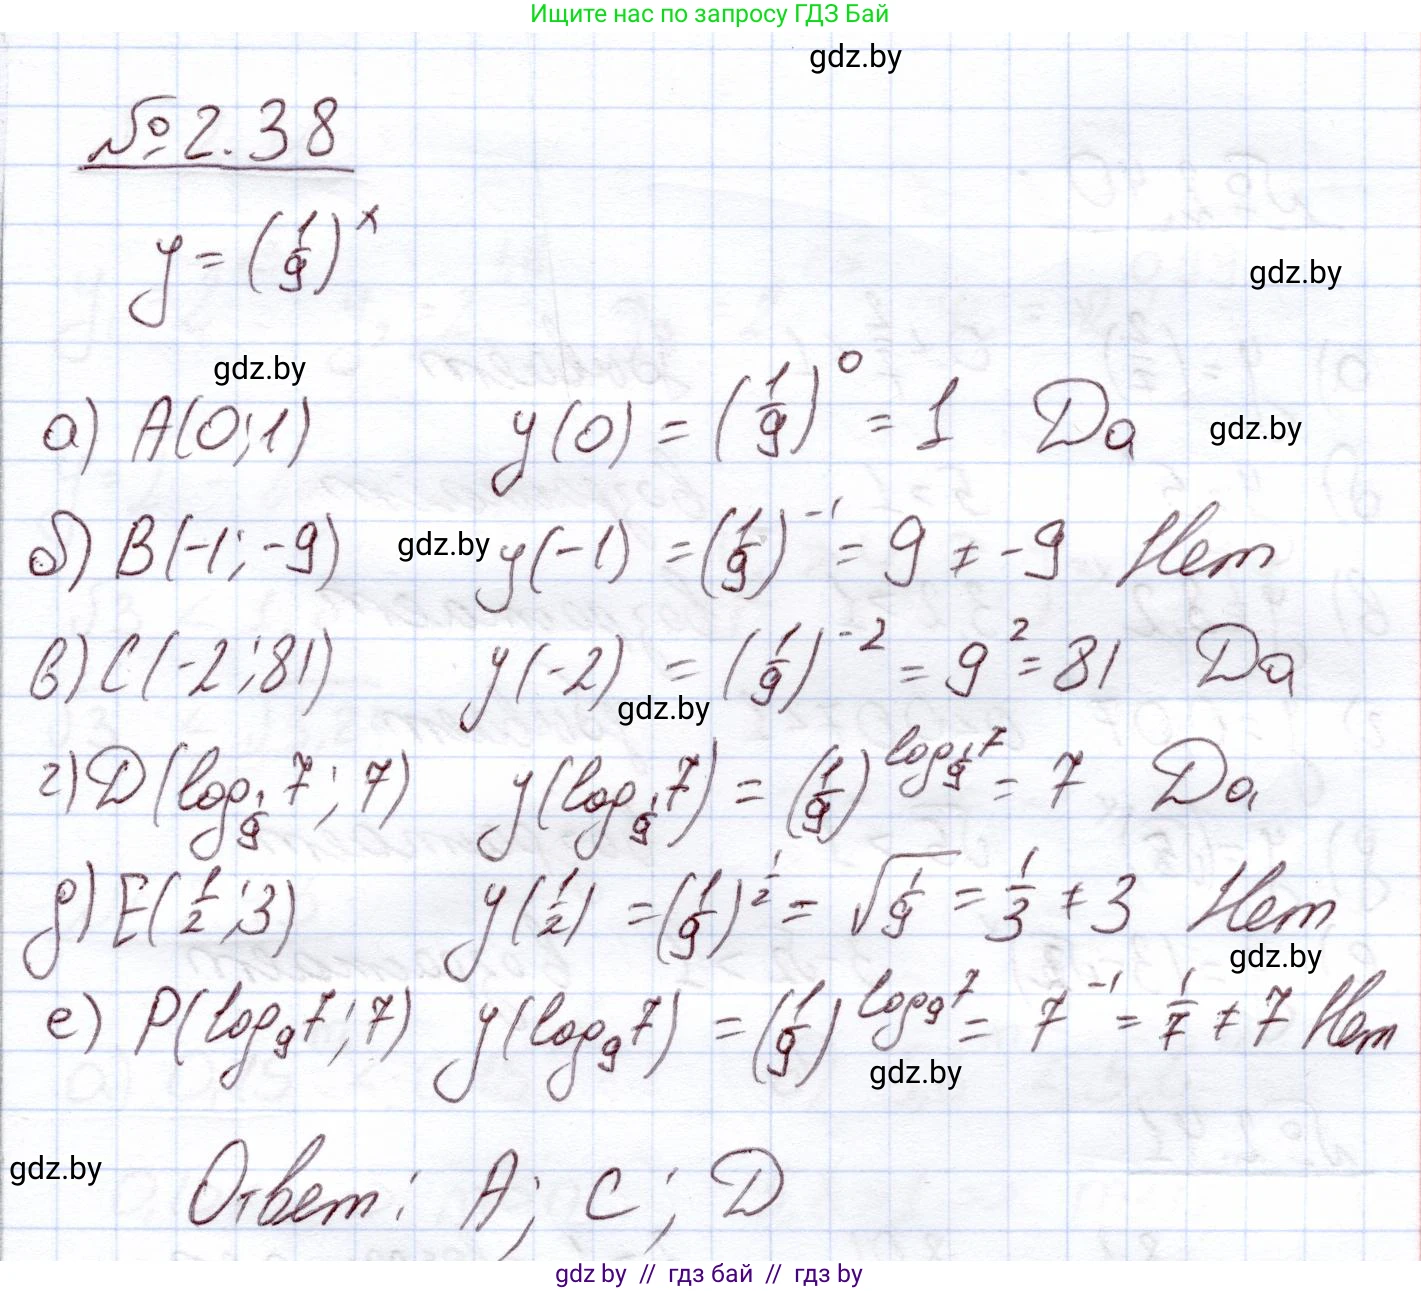 Ищите нас по запросу ГДЗ Бай
gdz.by
№2.38
y = (1/9)^x
gdz.by
gdz.by
а) A(0;1) y(0) = (1/9)^0 = 1 Да gdz.by
б) B(-1; -9) gdz.by y(-1) = (1/9)^-1 = 9 ≠ -9 Нет
в) C(-2; 81) y(-2) = (1/9)^-2 = 9^2 = 81 Да
gdz.by
г) D(log_1/9 7; 7) y(log_1/9 7) = (1/9)^log_1/9 7 = 7 Да
д) E(1/2; 3) y(1/2) = (1/9)^1/2 = √1/9 = 1/3 ≠ 3 Нет
gdz.by
е) P(log_9 7; 7) y(log_9 7) = (1/9)^log_9 7 = 7^-1 = 1/7 ≠ 7 Нет
gdz.by
gdz.by
Ответ: A; C; D
gdz by // гдз бай // гдз by